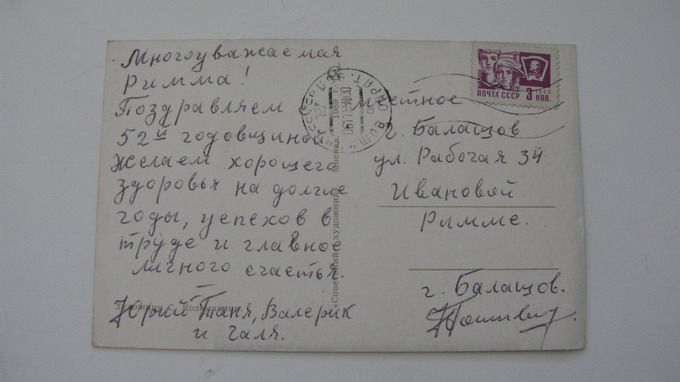 Многоуважаемая
Римма!
Поздравляем
52й годовщиной
желаем хорошего
здоровья на долгие
годы, успехов в
труде и главное
личного счастья.
Юрий Таня, Валерик
и Галя.
«Советский художник» Москва.
ПОЧТА СССР 3 КОП.
местное
г. Балашов
ул. Рабочая 34
Ивановой
Римме.
г. Балашов.